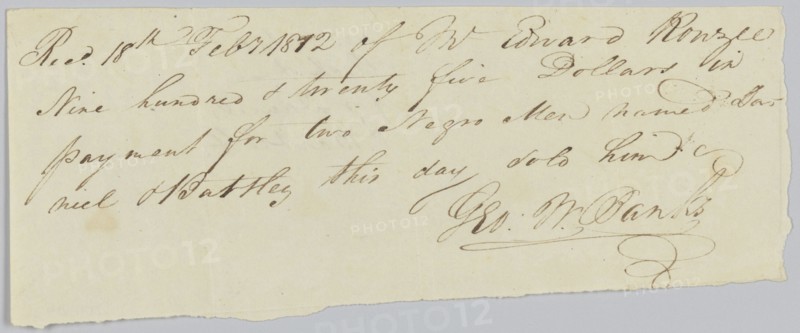 Recd. 18th Feby 1812 of Mr Edward Rouzee
Nine hundred & twenty five Dollars in
payment for two Negro Men named Da-
niel & Battley this day sold him
Geo: W. Banks
PHOTO12